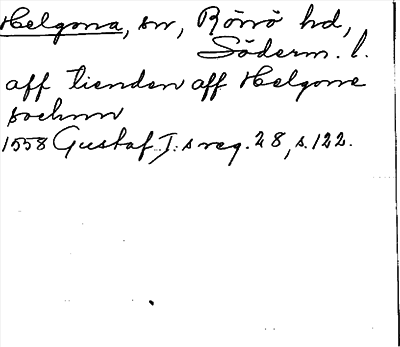 Helgona, sn, Rönö hd,
Söderm. l.
aff tienden aff Helgone
sochnn
1558 Gustaf I:s reg. 28, s. 122.